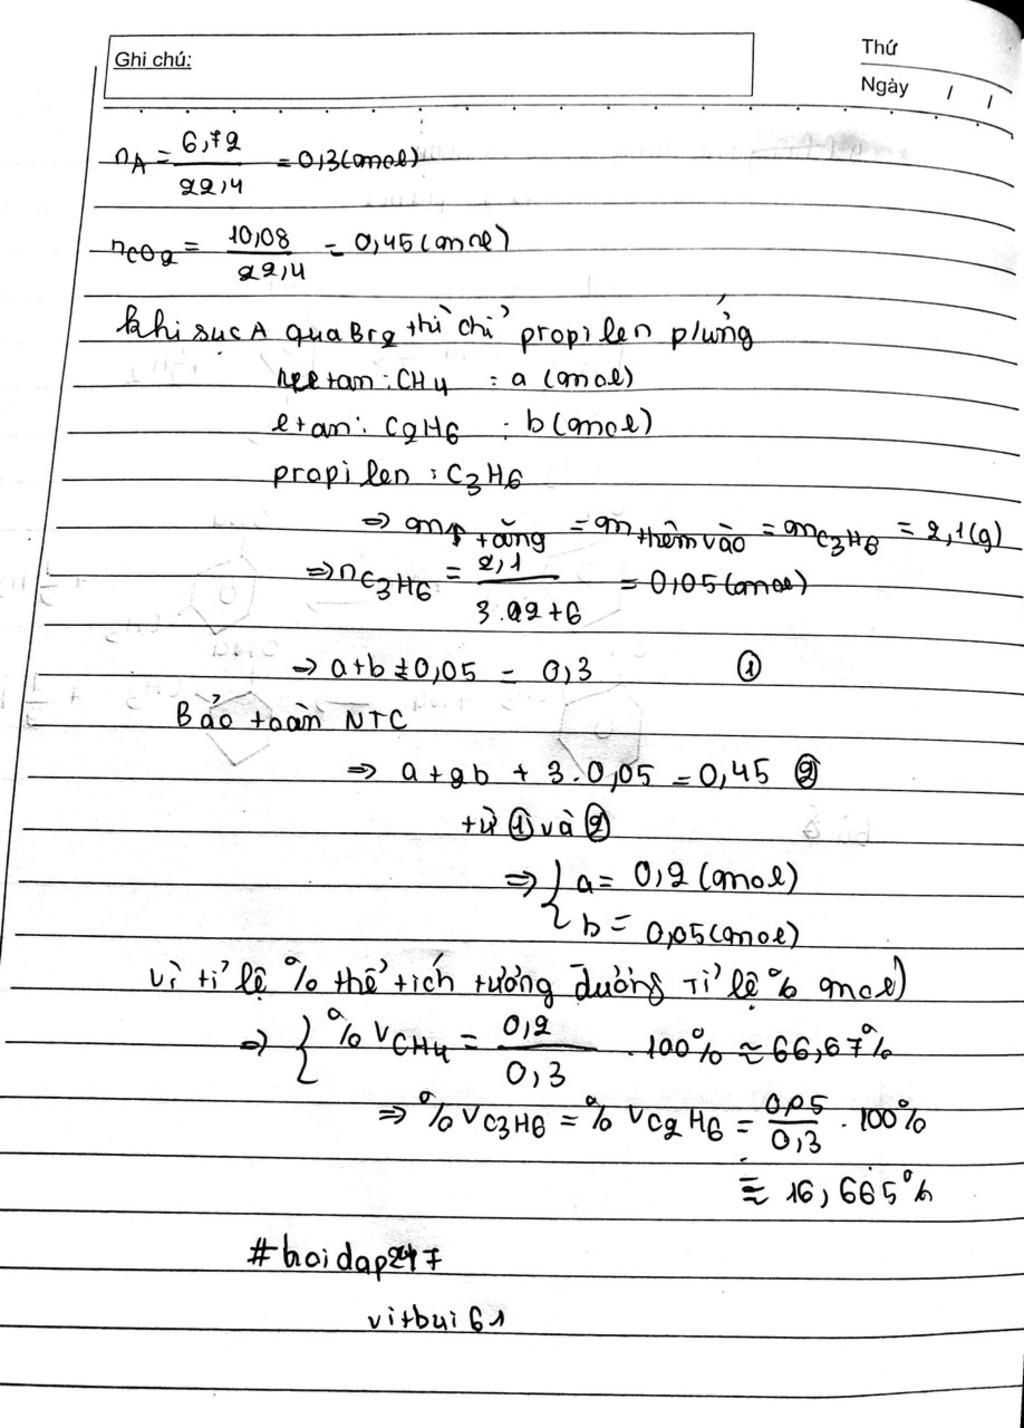 Ghi chú:
Thứ
Ngày / /
nA = 6,72 / 22,4 = 0,3(mol)
nCO2 = 10,08 / 22,4 = 0,45(mol)
khi sục A qua Br2 thì chỉ propilen p/ứng
metan: CH4 : a (mol)
etan: C2H6 : b(mol)
propilen : C3H6
⇒ m↑ tăng = m thêm vào = mC3H6 = 2,1(g)
⇒ nC3H6 = 2,1 / 3.12+6 = 0,05(mol)
⇒ a+b+0,05 = 0,3 ①
Bảo toàn NTC
⇒ a+2b + 3.0,05 = 0,45 ②
từ ① và ②
⇒ { a = 0,2 (mol)
b = 0,05(mol)
Vì tỉ lệ % thể tích tương đương Tỉ lệ % mol)
⇒ { % VCH4 = 0,2 / 0,3 . 100% ≈ 66,67%
⇒ % VC3H6 = % VC2H6 = 0,05 / 0,3 . 100%
≈ 16,665%
#hoidap247
vitbui61